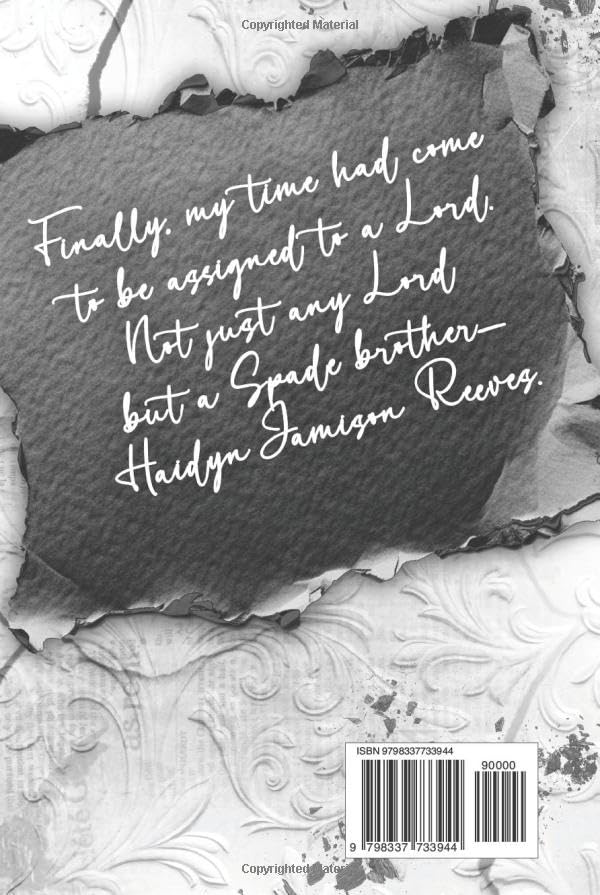 Copyrighted Material
Finally, my time had come
to be assigned to a Lord.
Not just any Lord
but a Spade brother—
Haidyn Jamison Reeves.
ISBN 9798337733944
90000
9 798337 733944
Copyrighted Material